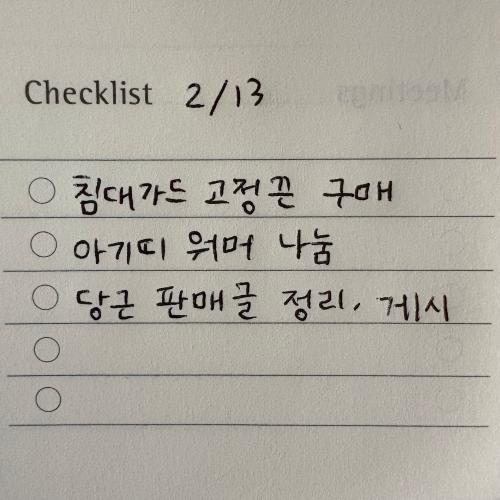 Checklist 2/13
침대가드 고정끈 구매
아기띠 워머 나눔
당근 판매글 정리, 게시